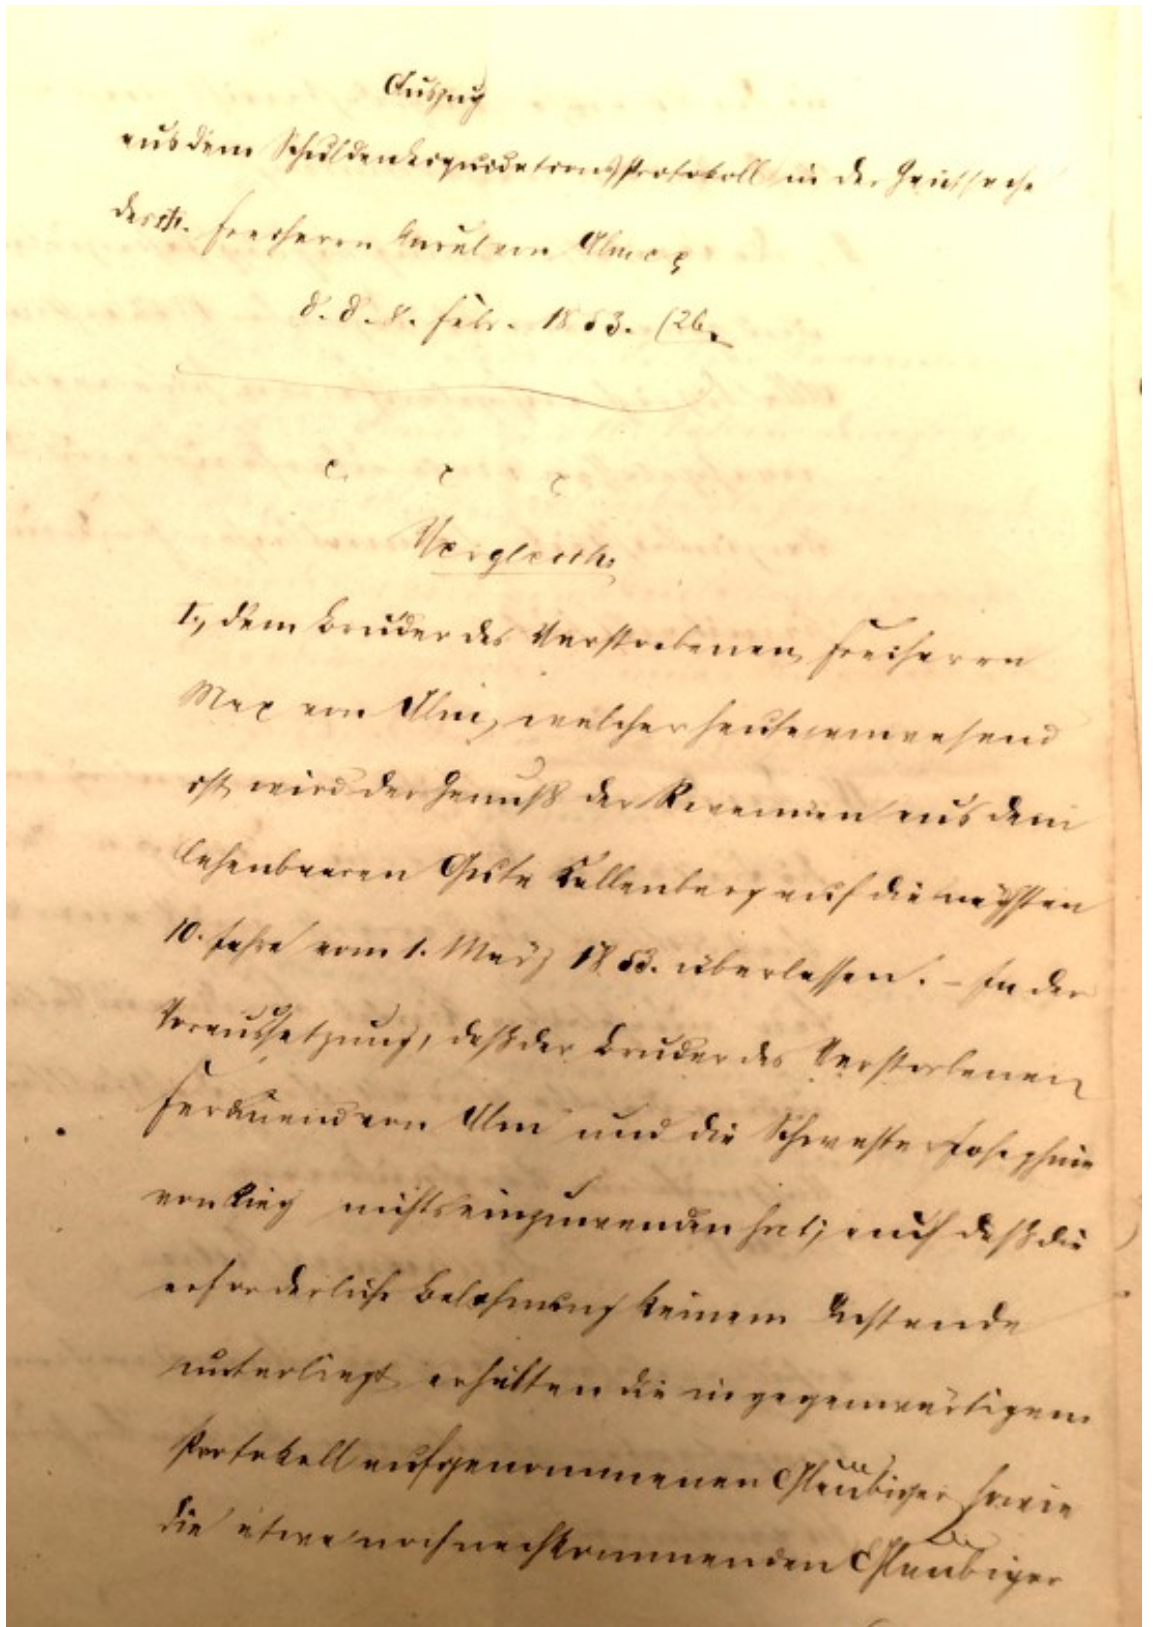 Auszug
aus dem Schuldenliquidationsprotokoll in der Gantsache
des Freiherrn Karl von Ulm
d. d. 8. Febr. 1853.
Vergleich
1., dem Bruder des Verstorbenen, Freiherrn
Max von Ulm, welcher heute anwesend
ist, wird der Genuß der Revenüen aus dem
lehenbaaren Gute Kallenberg auf die nächsten
10. Jahre vom 1. März 1853. überlassen. – In der
Voraussetzung, daß der Bruder des Verstorbenen
Ferdinand von Ulm und die Schwester Josephine
von nichts einzuwenden hat; auch daß die
erforderliche Belehnung keinem Anstande
unterliegt erhalten die in gegenwärtigem
Protokoll aufgenommenen Gläubiger sowie
die etwa noch nachkommenden Gläubiger